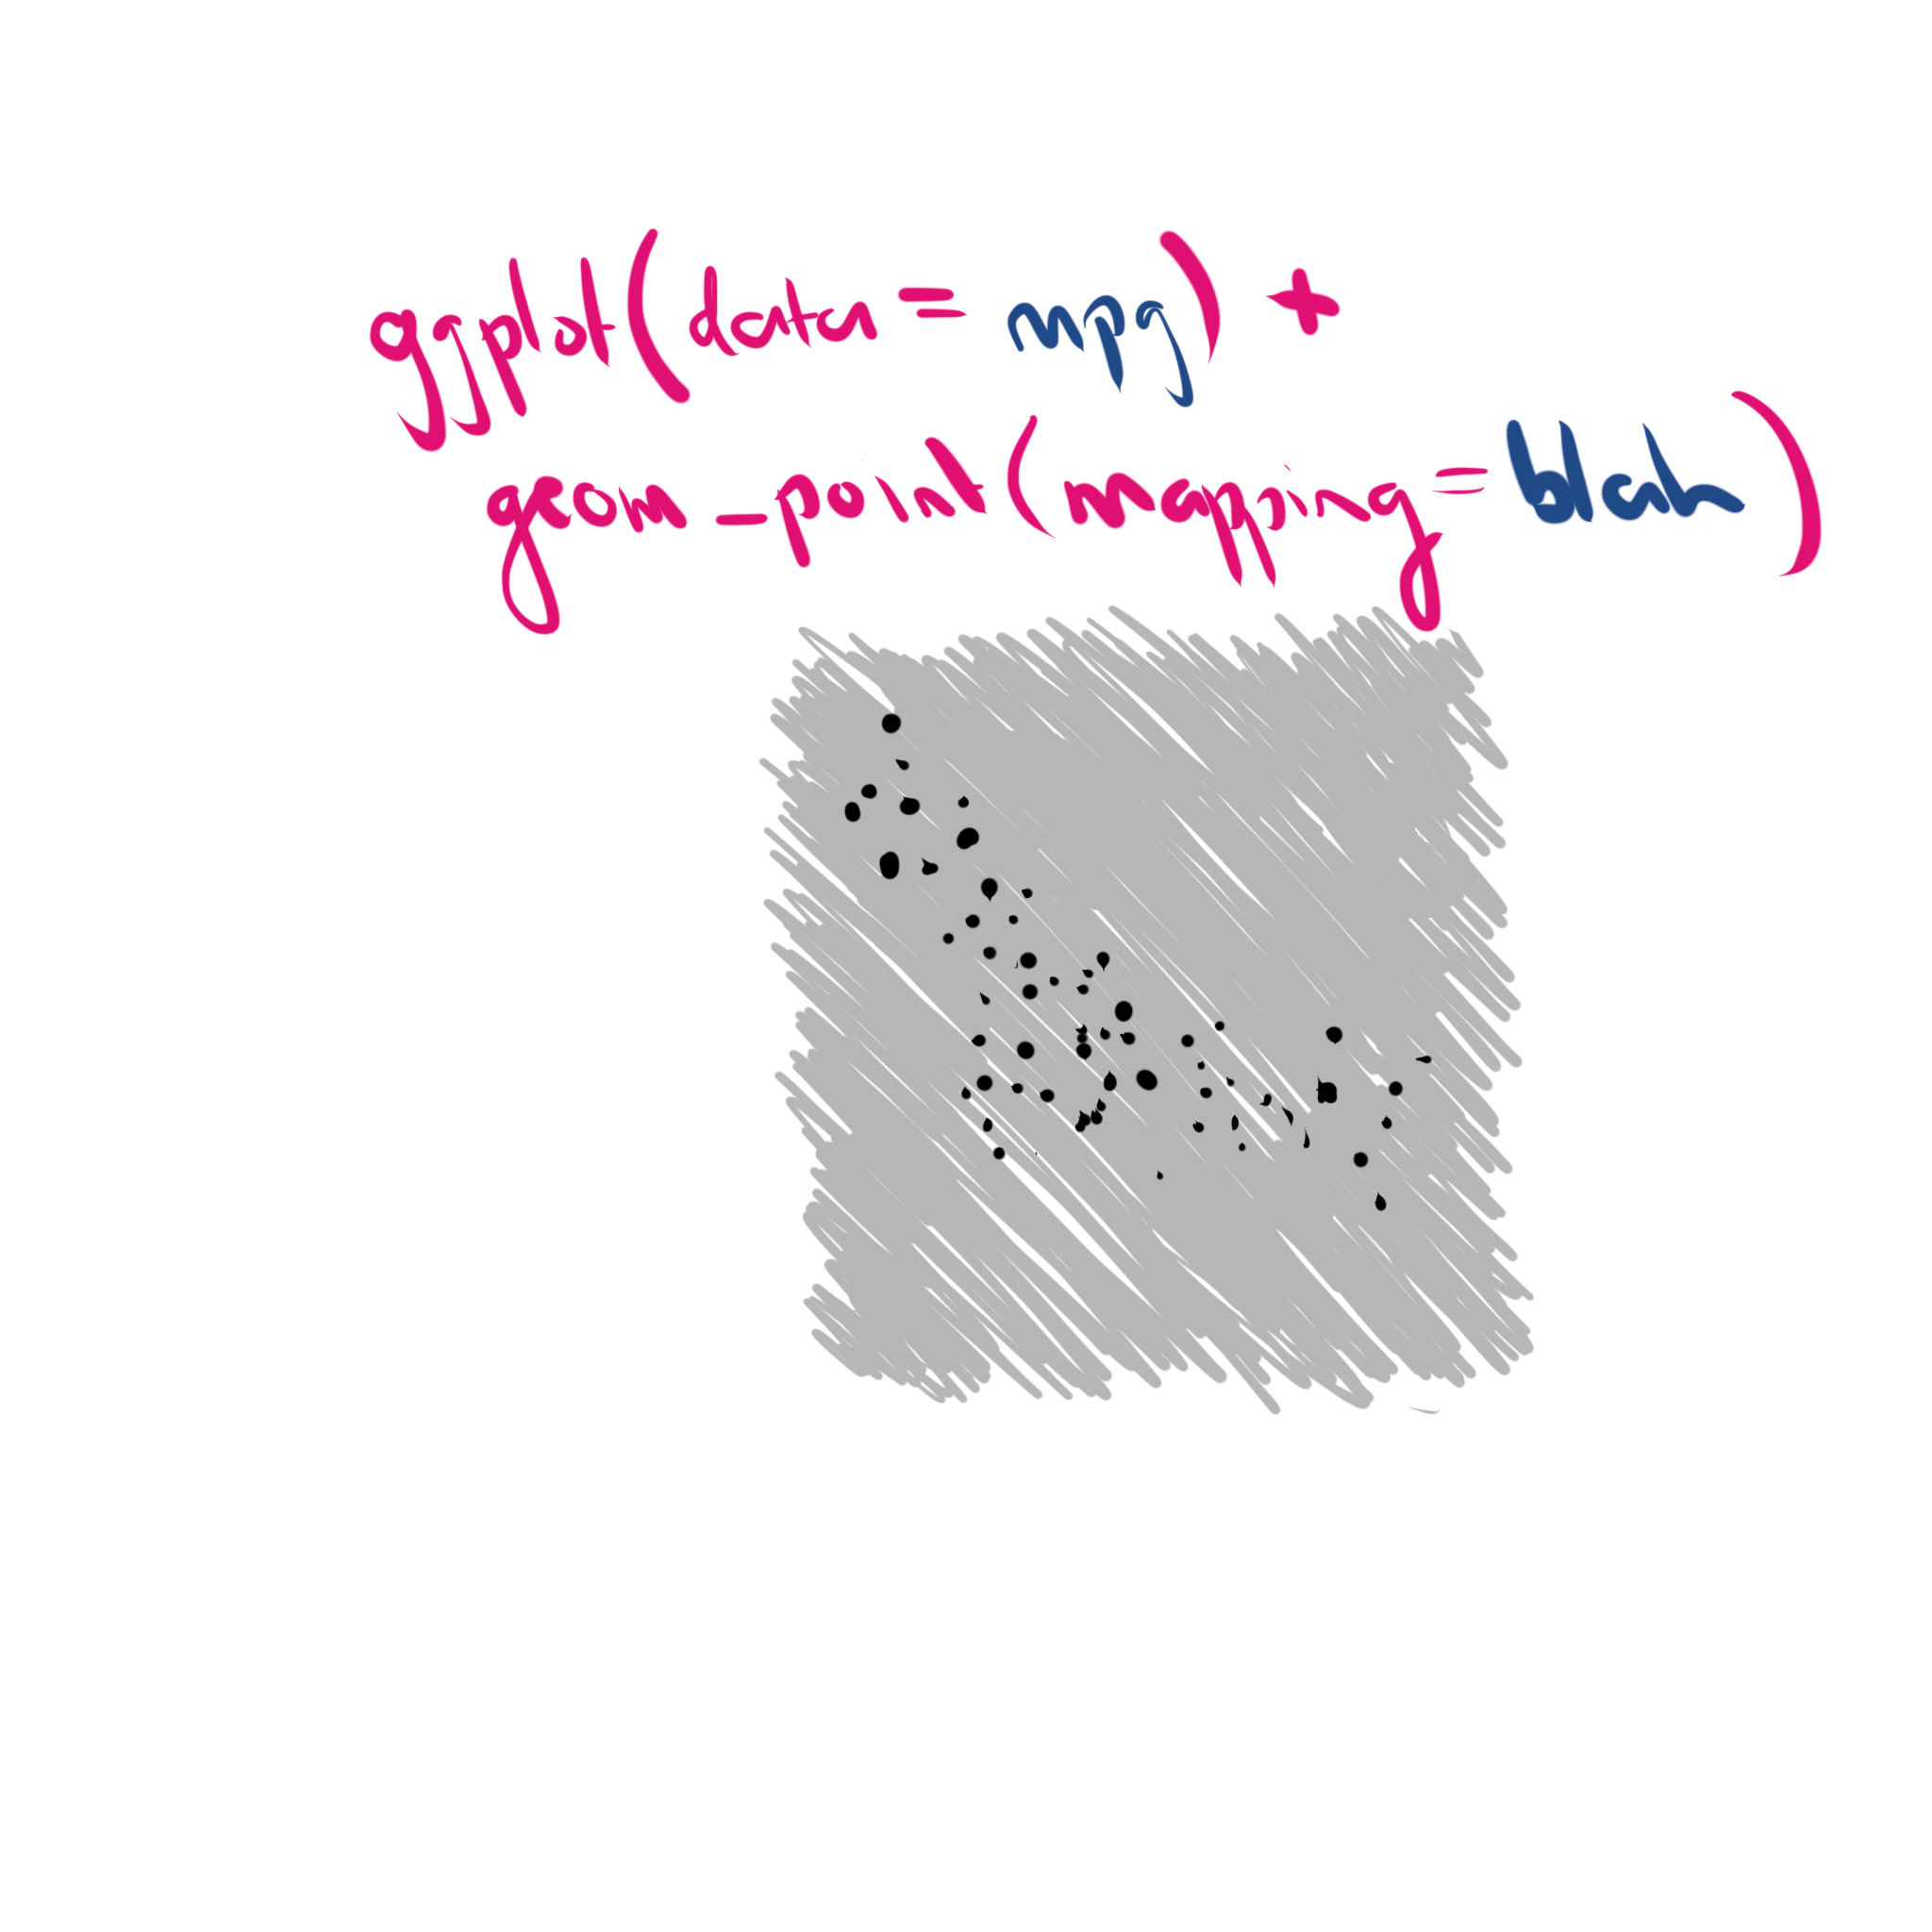 ggplot(data = mpg) +
geom_point(mapping = blah)